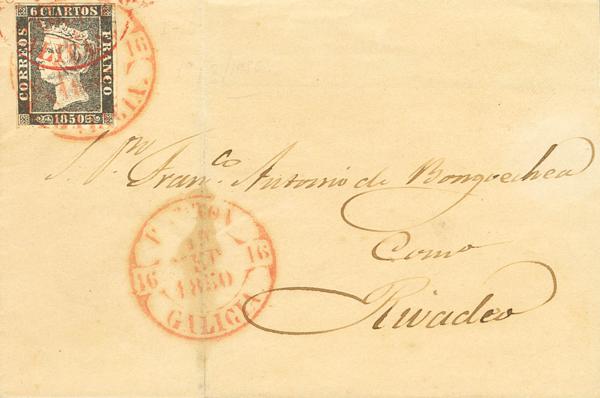 6 CUARTOS
CORREOS
FRANCO
1850
16
S. Dn Franco Antonio de Bongoechea
Como
Rivadeo
16
16
1850
GALICIA